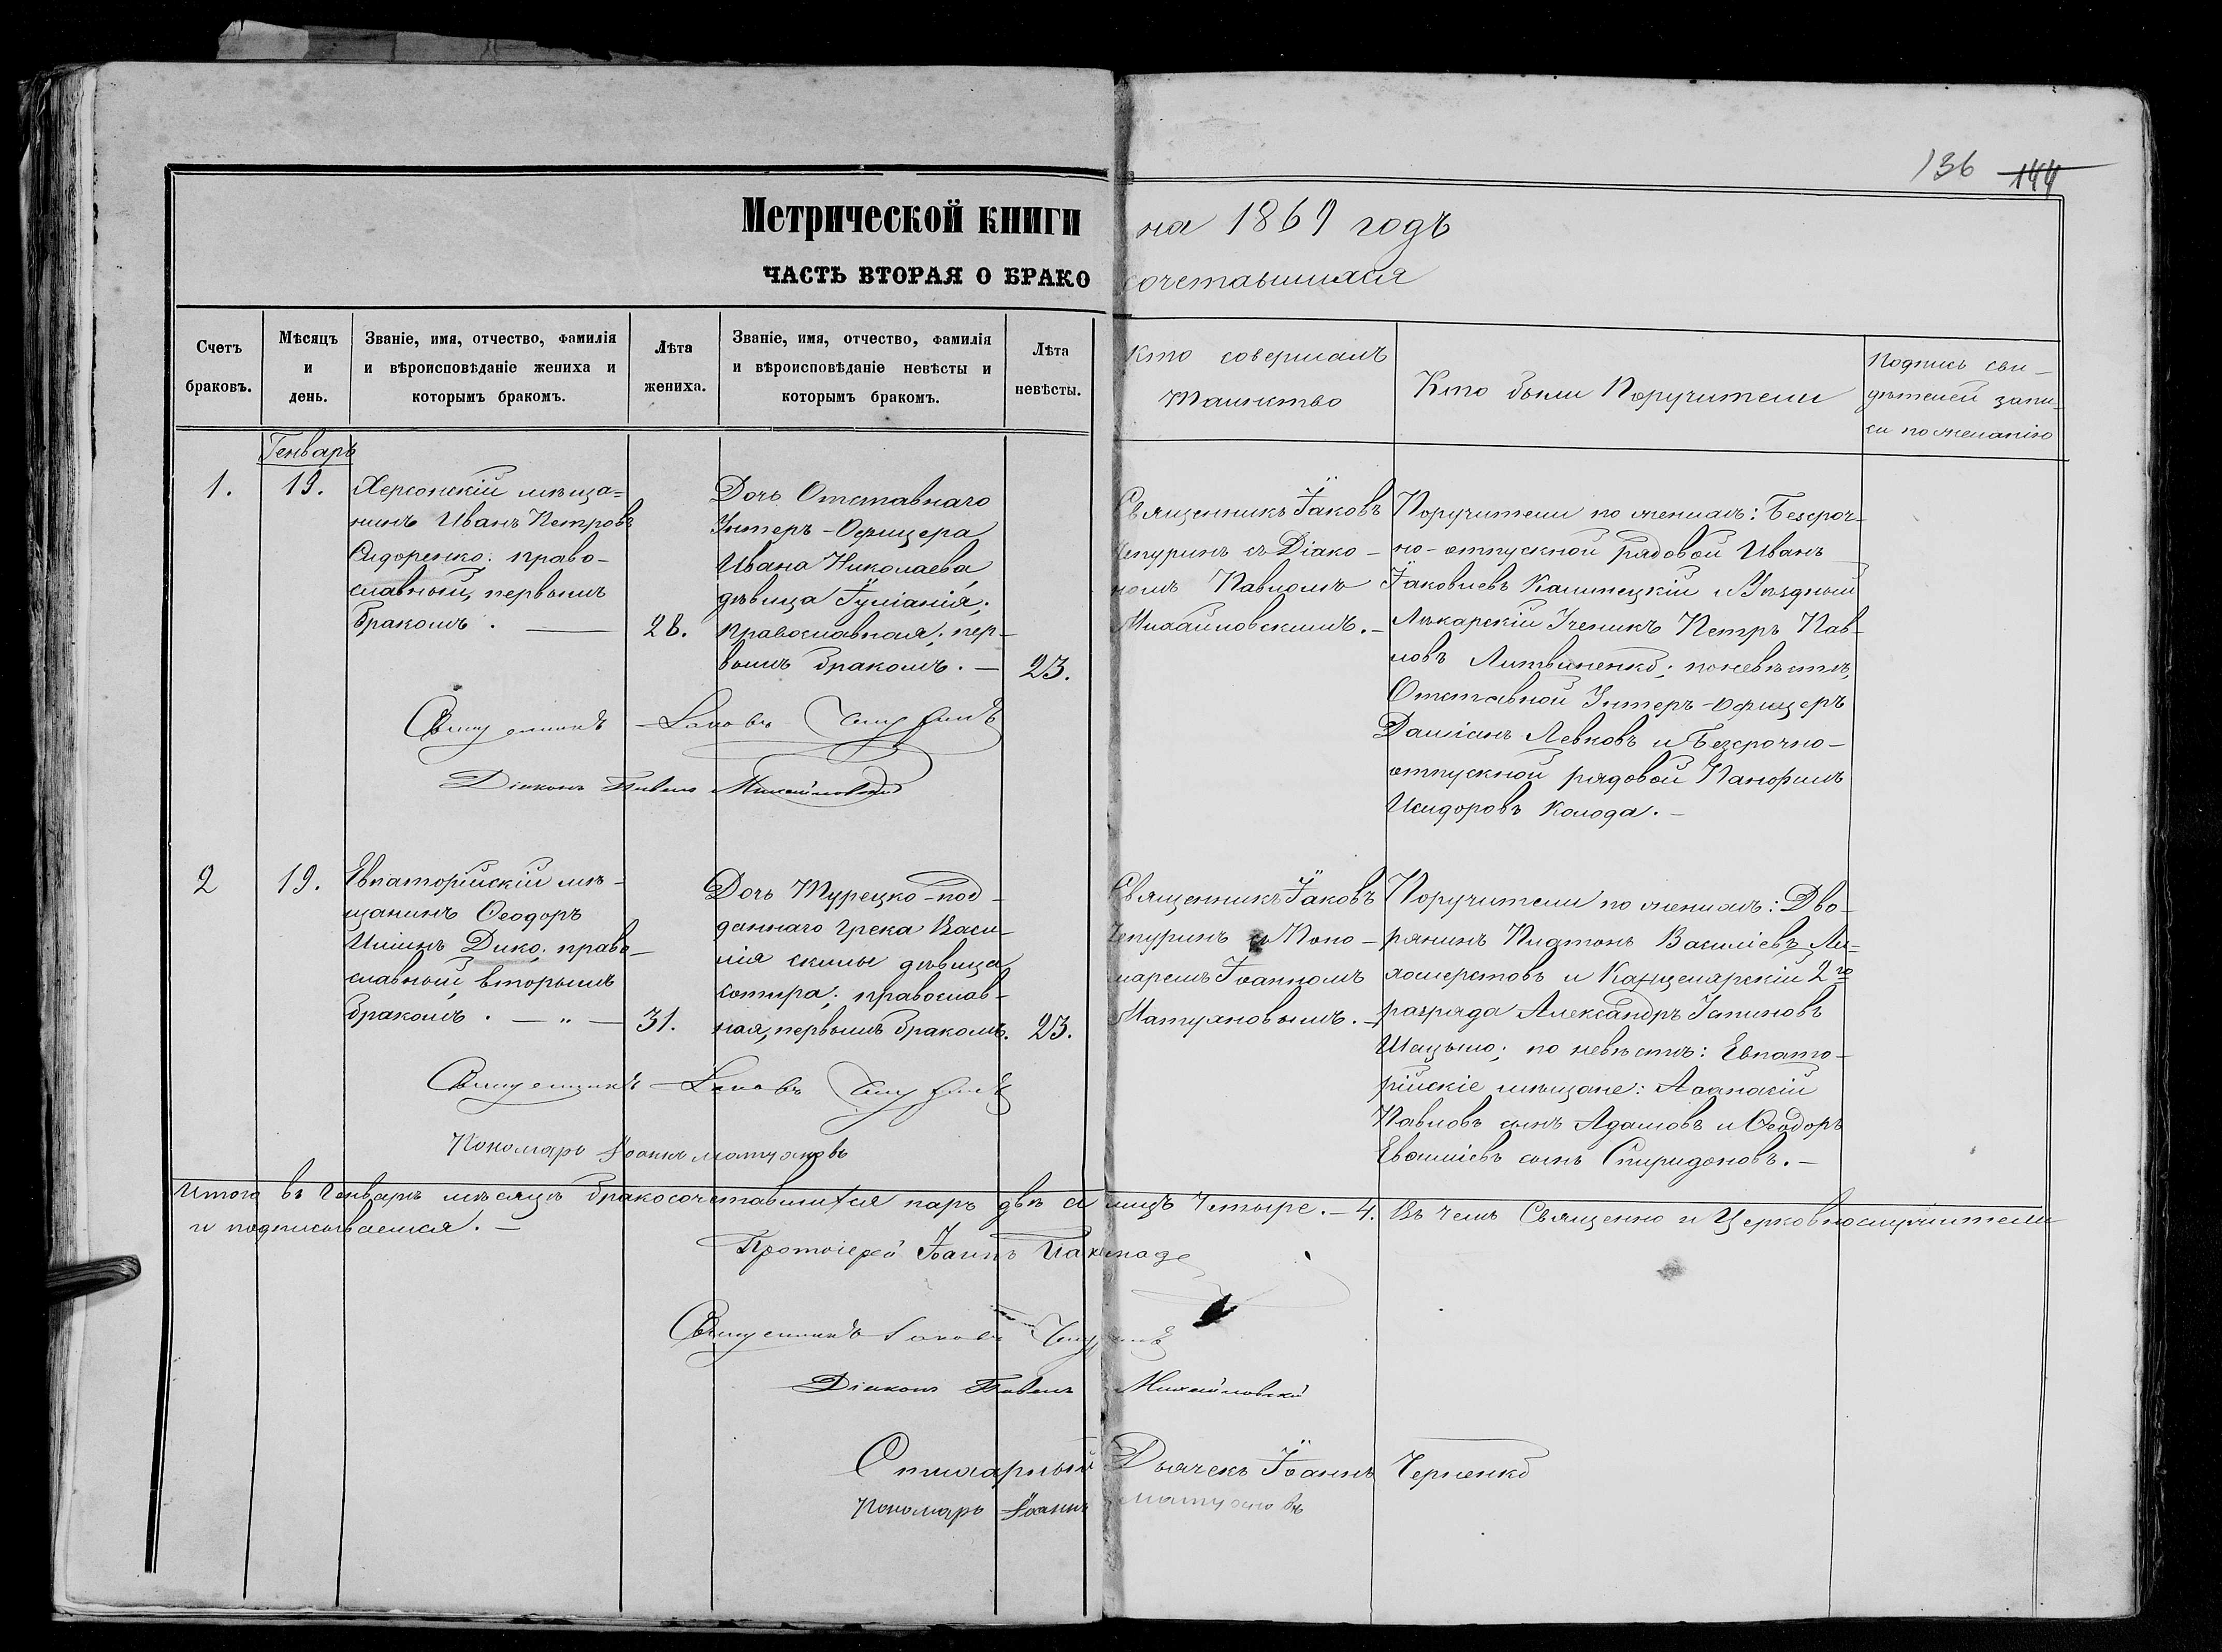 136 144
Метрической книги на 1869 годъ
ЧАСТЬ ВТОРАЯ О БРАКО сочетавшихся
Счетъ браковъ.
Мѣсяцъ и день.
Званіе, имя, отчество, фамилія и вѣроисповѣданіе жениха и которымъ бракомъ.
Лѣта жениха.
Званіе, имя, отчество, фамилія и вѣроисповѣданіе невѣсты и которымъ бракомъ.
Лѣта невѣсты.
Кто совершалъ Таинство
Кто были Поручители
Подпись сви-
дѣтелей запи-
си по желанію
Генварь
1.
19.
Херсонскій мѣща=
нинъ Иванъ Петровъ
Сидоренко; право-
славный, первымъ
бракомъ. —
28.
Дочь Отставнаго
Унтеръ-Офицера
Ивана Николаева,
дѣвица Іуліанія;
православная; пер-
вымъ бракомъ. —
23.
Священникъ Іаковъ
Чепуринъ съ Діако-
номъ Павломъ
Михайловскимъ. —
Поручители по женихѣ: Безсроч-
но-отпускной рядовой Иванъ
Іаковлевъ Калинецкій и Уѣздный
Лѣкарскій Ученикъ Петръ Пав-
ловъ Литвиненко; по невѣстѣ,
Отставной Унтеръ-офицеръ
Даміанъ Левковъ и Безсрочно-
отпускной рядовой Панфилъ
Исидоровъ Колода. —
Священникъ Іаковъ Чепуринъ
Діаконъ Павелъ Михайловскій
2
19.
Евпаторійскій мѣ-
щанинъ Ѳеодоръ
Ильинъ Дико; право-
славный, вторымъ
бракомъ. — „ —
31.
Дочь Турецко-под-
даннаго Грека Васи-
лія дѣвица
православ-
ная, первымъ бракомъ.
23.
Священникъ Іаковъ
Чепуринъ съ Поно-
маремъ Іоанномъ
Матуановымъ. —
Поручители по женихѣ: Дво-
рянинъ Василіевъ
и Канцелярскій 2го
разряда Александръ
по невѣстѣ: Евпато-
рійскіе мѣщане: Аѳанасій
Павловъ сынъ Адамовъ и Ѳеодоръ
сынъ Спиридоновъ. —
Священникъ Іаковъ Чепуринъ
Пономарь Іоаннъ Матуановъ
Итого въ Генварѣ мѣсяцѣ бракосочетавшихся паръ двѣ а лицъ четыре. — 4. Въ чемъ Священно и Церковнослужители
и подписываемся. —
Протоіерей Іоаннъ
Священникъ Іаковъ Чепуринъ
Діаконъ Павелъ Михайловскій
Стихарный Дьячекъ Іоаннъ Черненко
Пономарь Іоаннъ Матуановъ